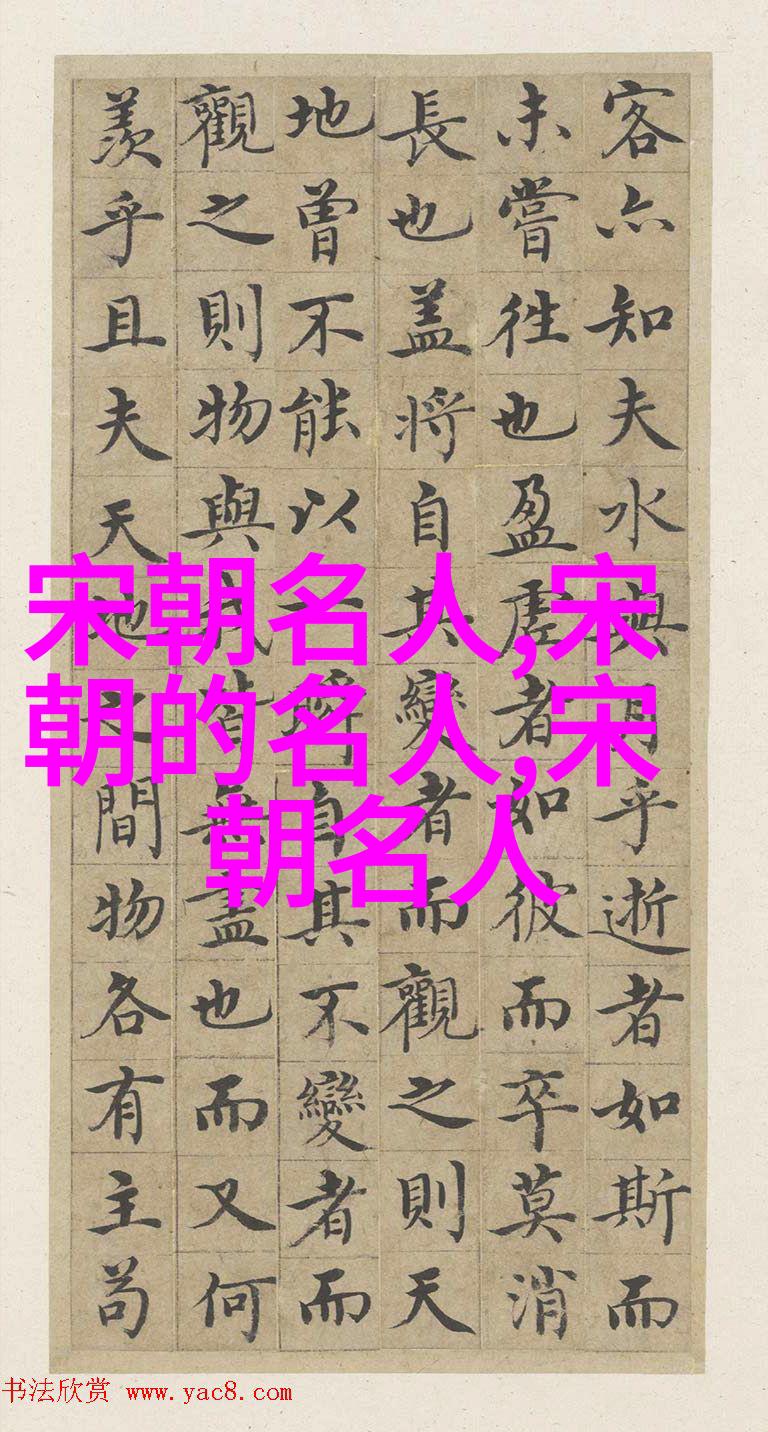 客亦知夫水與月乎逝者如斯而
未嘗往也盈虛者如彼而卒莫消
長也盖將自其變者而觀之則天
地曾不能以一瞬自其不變者而
觀之則物與我皆無盡也而又何
羨乎且夫天地之間物各有主苟
宋朝名人,宋
朝的名人,宋
朝名人
书法欣赏 www.yac8.com